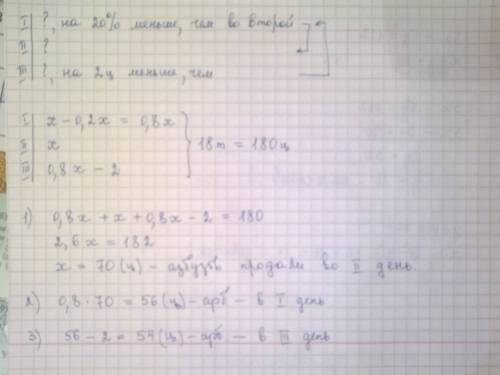 I ?, на 20% меньше, чем во второй
II ?
III ?, на 2ц меньше, чем
I x - 0,2x = 0,8x
II x
III 0,8x - 2
18т = 180ц
1) 0,8x + x + 0,8x - 2 = 180
2,6x = 182
x = 70 (ц) - арбузов продали во II день.
2) 0,8 · 70 = 56 (ц) - арб - в I день
3) 56 - 2 = 54 (ц) - арб. - в III день